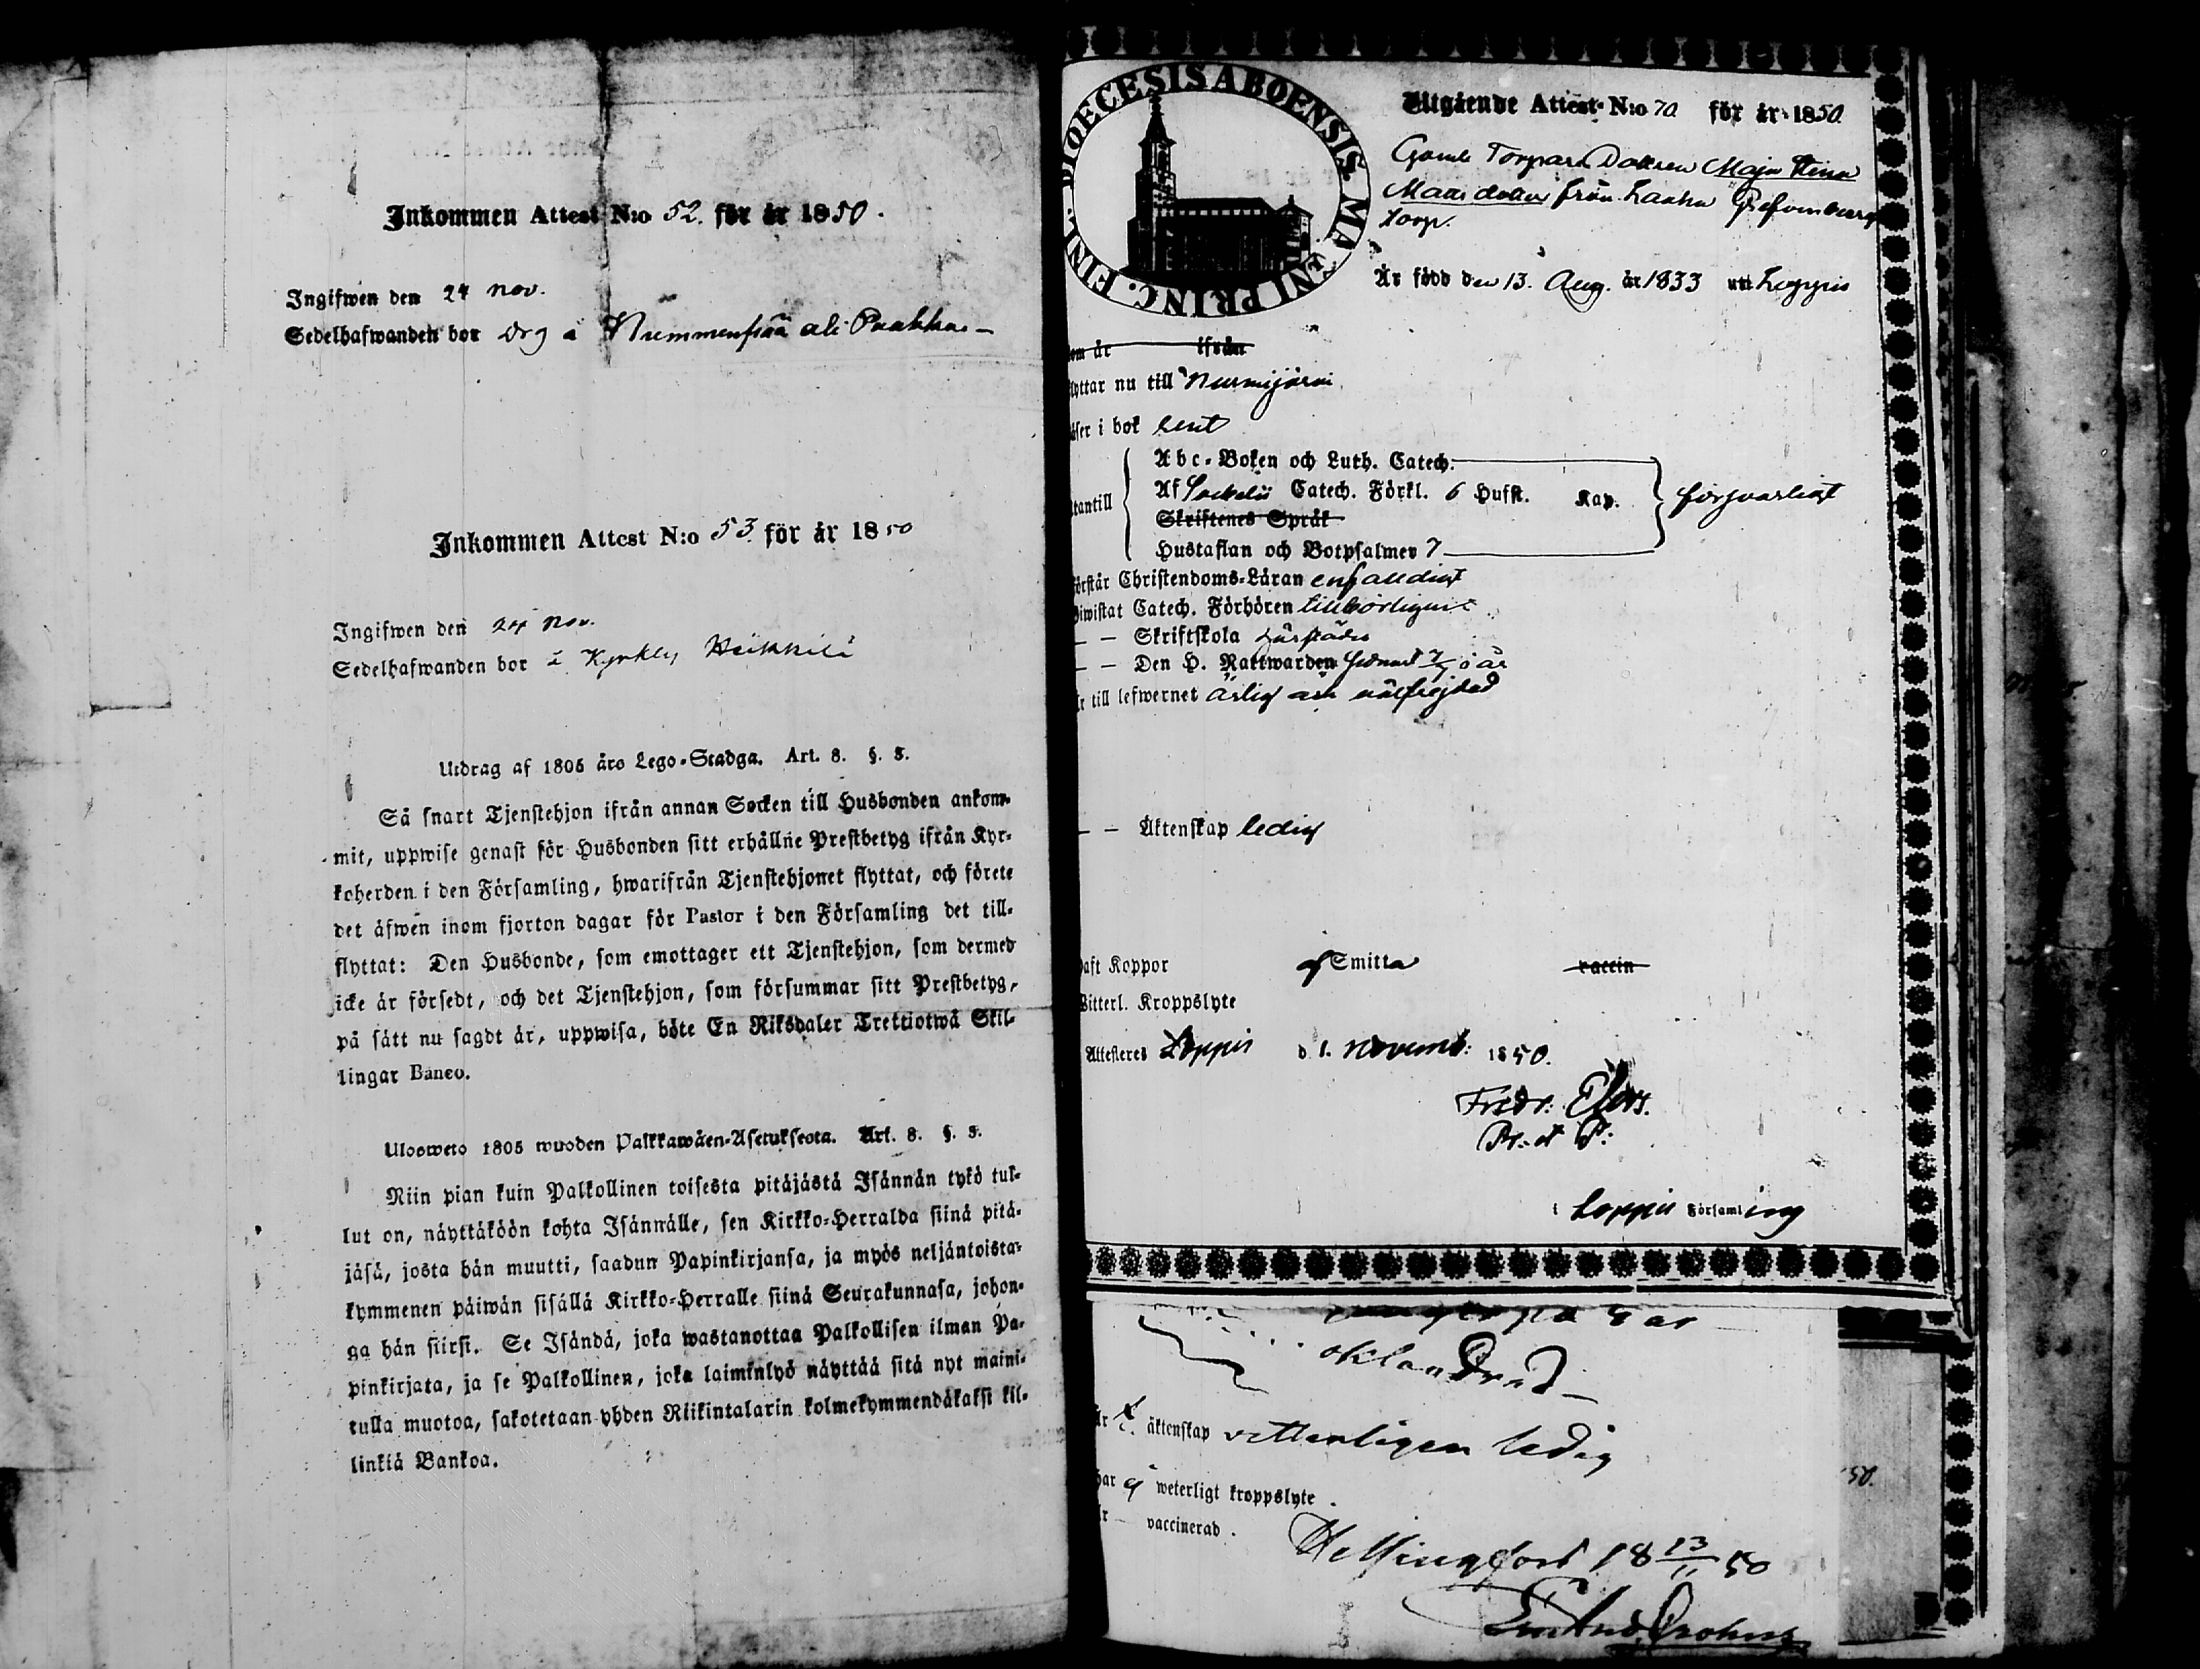 Inkommen Attest N:o 52. för år 1850.
Ingifwen den 24 nov.
Sedelhafwanden bor drg å Nummenpää ali Paakka –
Inkommen Attest N:o 53. för år 1850
Ingifwen den 24 nov.
Sedelhafwanden bor i Kyrkby Heikkilä
Utdrag af 1805 års Lego-Stadga. Art. 8. §. 3.
Så snart Tjenstehjon ifrån annan Socken till Husbonden ankom-
mit, uppwise genast för Husbonden sitt erhållne Prestbetyg ifrån Kyr-
koherden i den Församling, hwarifrån Tjenstehjonet flyttat, och förete
det äfwen inom fjorton dagar för Pastor i den Församling det till-
flyttat: Den Husbonde, som emottager ett Tjenstehjon, som dermed
icke är försedt, och det Tjenstehjon, som försummar sitt Prestbetyg,
på sätt nu sagdt är, uppwisa, böte En Riksdaler Trettiotwå Skil-
lingar Banco.
Ulosweto 1805 wuoden Palkkawäen-Asetuksesta. Art. 8. §. 3.
Niin pian kuin Palkollinen toisesta pitäjästä Isännän tykö tul-
lut on, näyttäköön kohta Isännälle, sen Kirkko-Herralda siinä pitä-
jäsä, josta hän muutti, saadun Papinkirjansa, ja myös neljäntoista-
kymmenen päiwän sisällä Kirkko-Herralle siinä Seurakunnasa, johon-
ga hän siirsi. Se Isändä, joka wastanottaa Palkollisen ilman Pa-
pinkirjata, ja se Palkollinen, joka laiminlyö näyttää sitä nyt maini-
tulla muotoa, sakotetaan yhden Riikintalarin kolmekymmendäkaksi kil-
linkiä Bankoa.
DIOECESIS ABOENSIS MAGNI PRINC. FINL.
Utgående Attest N:o 70 för år 1850.
Gamle Torpare Dottren Maja Stina
Matts dotter från Laaku Grefvenberg
torp.
Är född den 13. Aug. år 1833 uti Loppis
som är ifrån
flyttar nu till Nurmijärvi
läser i bok rent
utantill
Abc-Boken och Luth. Catech.
Af Catech. Förkl. 6 Hufst. Kap. försvarligt
Skriftenes Språk
Hustaflan och Botpsalmer 7
förstår Christendoms-Läran enfaldigt
Biwistat Catech. Förhören tillbörligen
– – Skriftskola härstädes
– – Den H. Nattwarden
är till lefwernet ärlig och välfrejdad
– – Äktenskap ledig
haft Koppor af Smitta vaccin
Witterl. Kroppslyte
Attesteres Loppis d 1. Novemb: 1850.
Fredr: Elfors.
i Loppis Församling
är i äktenskap vetterligen ledig
har ej weterligt kroppslyte.
är – vaccinerad.
Helsingfors 18 13/11 50
50.